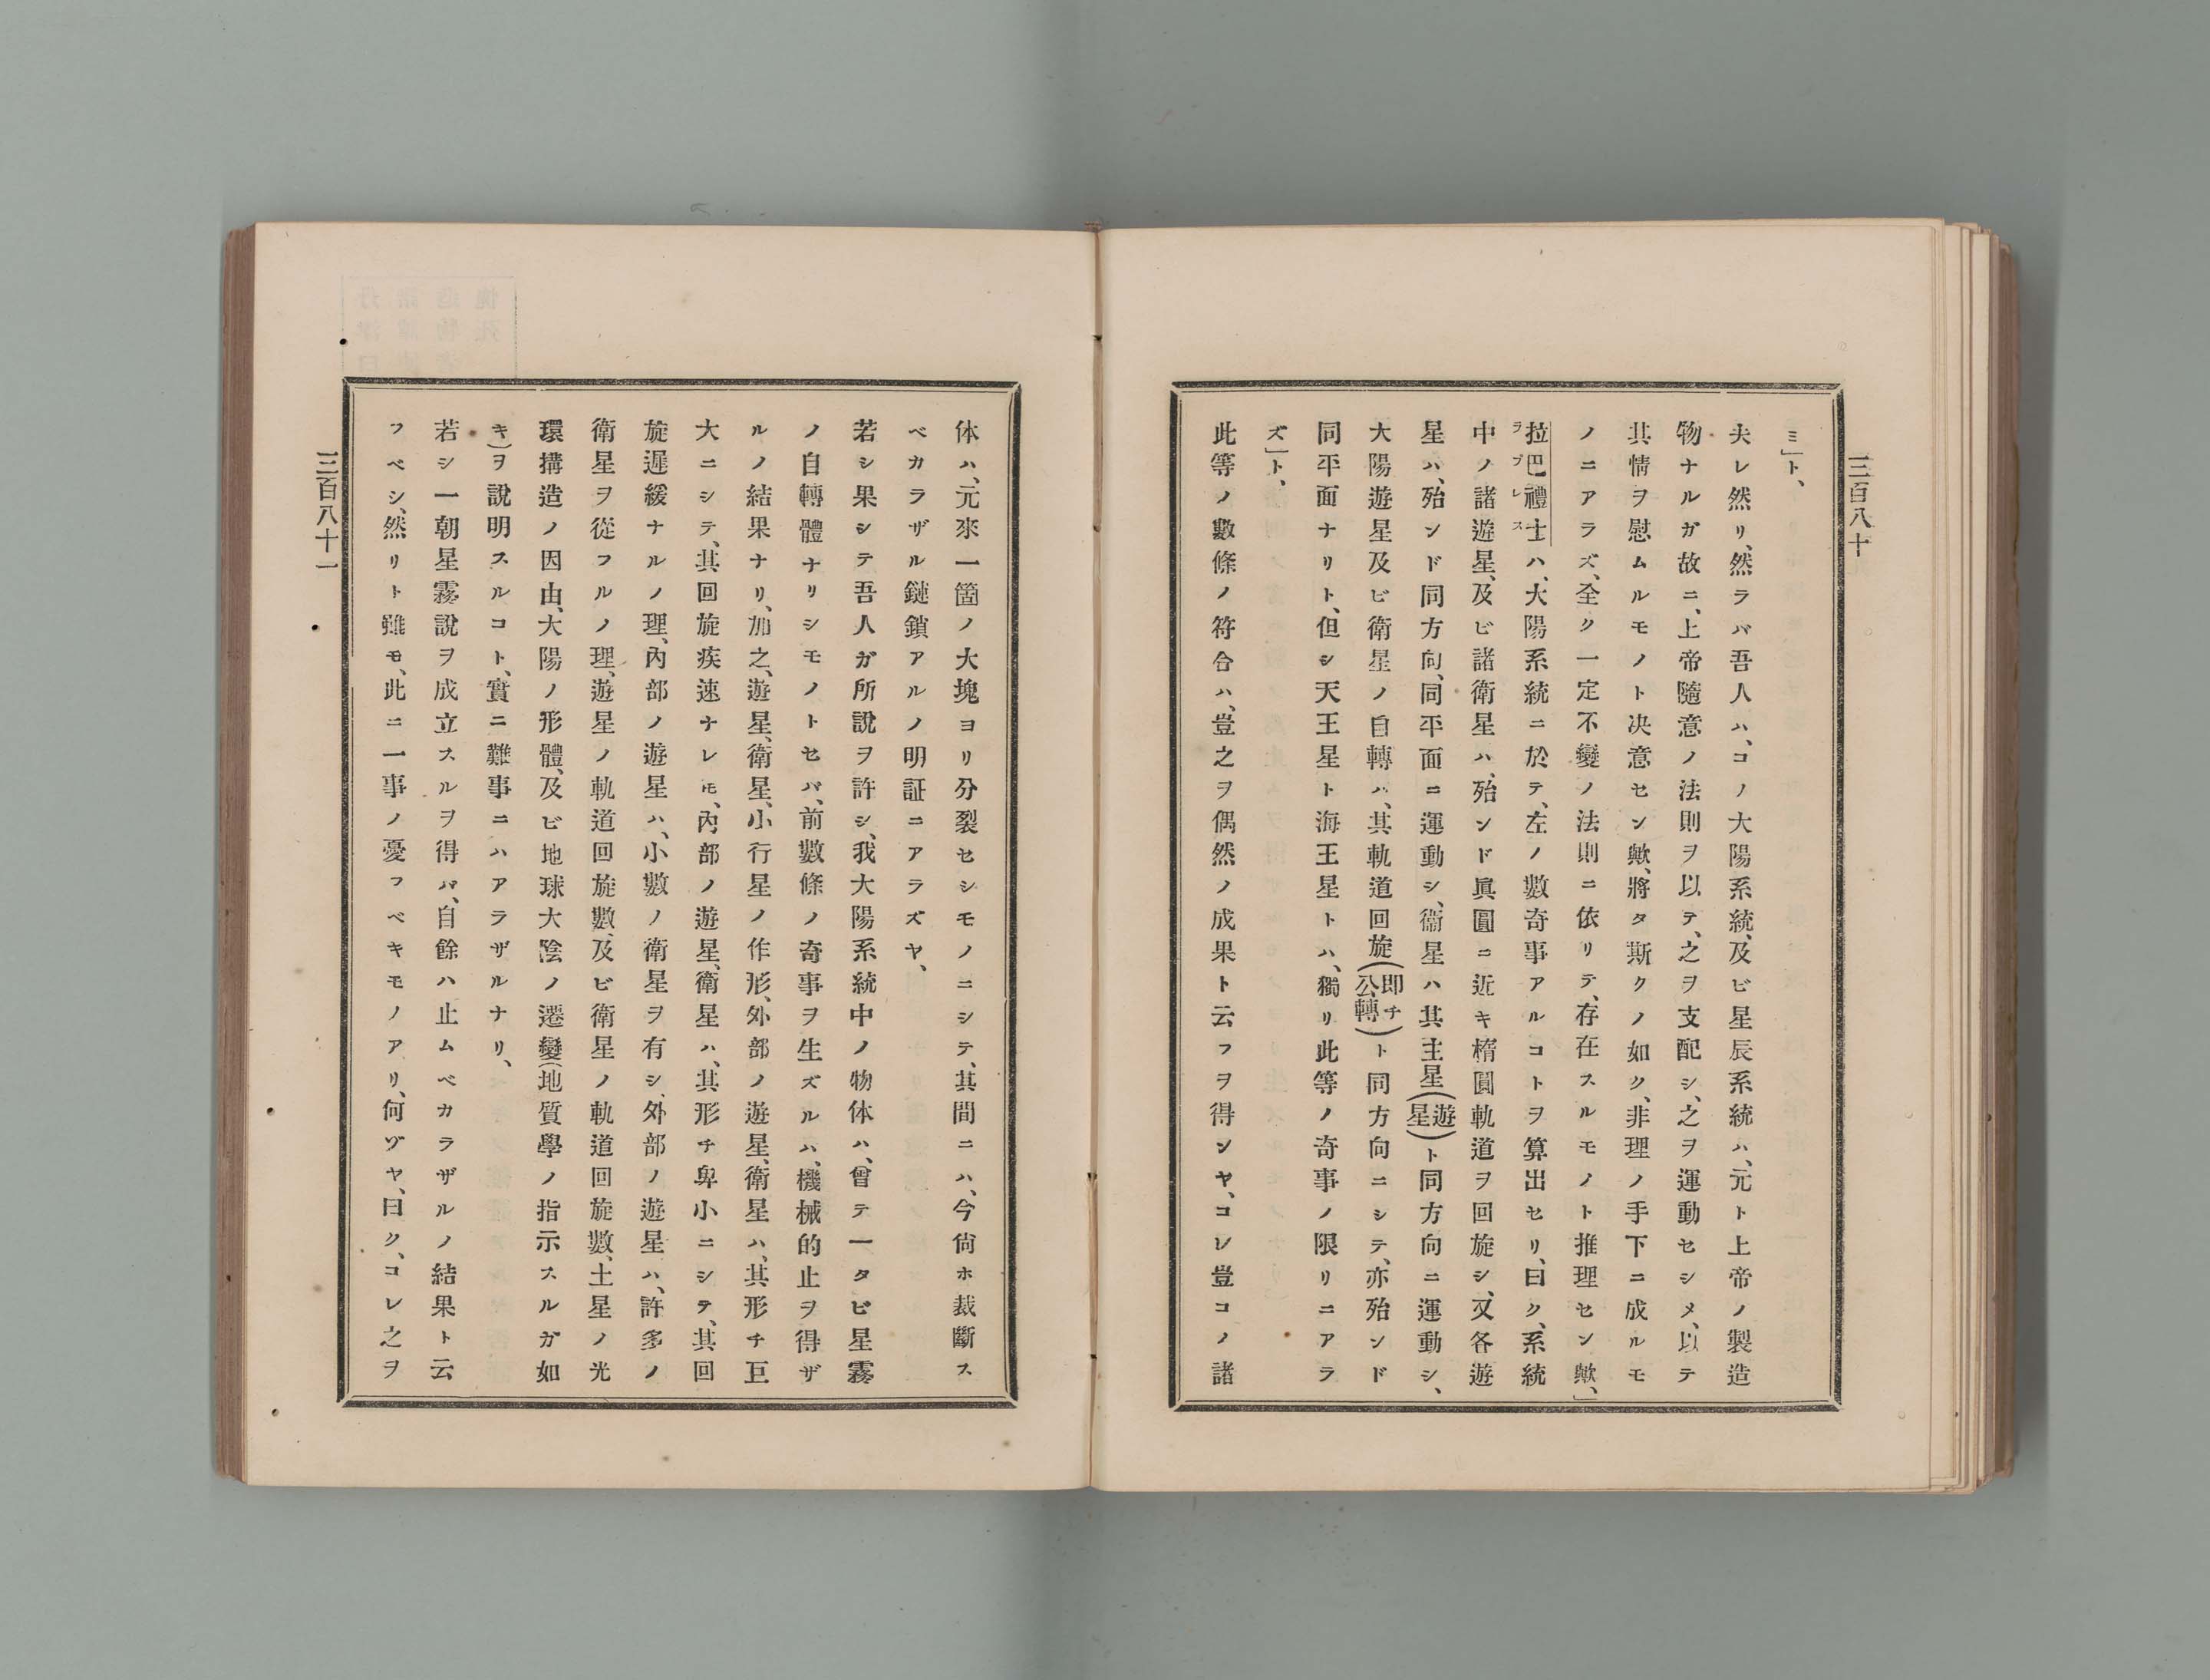 三百八十
ミ」ト、
夫レ然リ、然ラバ吾人ハ、コノ大陽系統、及ビ星辰系統ハ、元ト上帝ノ製造
物ナルガ故ニ、上帝隨意ノ法則ヲ以テ、之ヲ支配シ、之ヲ運動セシメ、以テ
其情ヲ慰ムルモノト决意セン歟、將タ斯クノ如ク、非理ノ手下ニ成ルモ
ノニアラズ、全ク一定不變ノ法則ニ依リテ、存在スルモノト推理セン歟、」
拉巴禮士ハ、大陽系統ニ於テ、左ノ數奇事アルコトヲ算出セリ、曰ク、系統
ラプレス
中ノ諸遊星、及ビ諸衛星ハ、殆ンド眞圓ニ近キ楕圓軌道ヲ回旋シ、又各遊
星ハ、殆ンド同方向、同平面ニ運動シ、衞星ハ其主星(遊星)ト同方向ニ運動シ、
大陽遊星及ビ衛星ノ自轉ハ、其軌道回旋(即チ公轉)ト同方向ニシテ、亦殆ンド
同平面ナリト、但シ天王星ト海王星トハ、獨リ此等ノ奇事ノ限リニアラ
ズ」ト、
此等ノ數條ノ符合ハ、豈之ヲ偶然ノ成果ト云フヲ得ンヤ、コレ豈コノ諸
体ハ、元來一箇ノ大塊ヨリ分裂セシモノニシテ、其間ニハ、今尙ホ裁斷ス
ベカラザル鏈鎖アルノ明証ニアラズヤ、
若シ果シテ吾人ガ所說ヲ許シ、我大陽系統中ノ物体ハ、曾テ一タビ星霧
ノ自轉體ナリシモノトセバ、前數條ノ奇事ヲ生ズルハ、機械的止ヲ得ザ
ルノ結果ナリ、加之、遊星、衛星、小行星ノ作形、外部ノ遊星、衛星ハ、其形チ巨
大ニシテ、其回旋疾速ナレ𪜈、內部ノ遊星、衛星ハ、其形チ卑小ニシテ、其回
旋遲緩ナルノ理、內部ノ遊星ハ、小數ノ衛星ヲ有シ、外部ノ遊星ハ、許多ノ
衛星ヲ從フルノ理、遊星ノ軌道回旋數、及ビ衛星ノ軌道回旋數、土星ノ光
環搆造ノ因由、大陽ノ形體、及ビ地球大陰ノ遷變(地質學ノ指示スルガ如
キ)ヲ說明スルコト、實ニ難事ニハアラザルナリ、
若シ一朝星霧說ヲ成立スルヲ得バ、自餘ハ止ムベカラザルノ結果ト云
フベシ、然リト雖モ、此ニ一事ノ憂フベキモノアリ、何ヅヤ、曰ク、コレ之ヲ
三百八十一